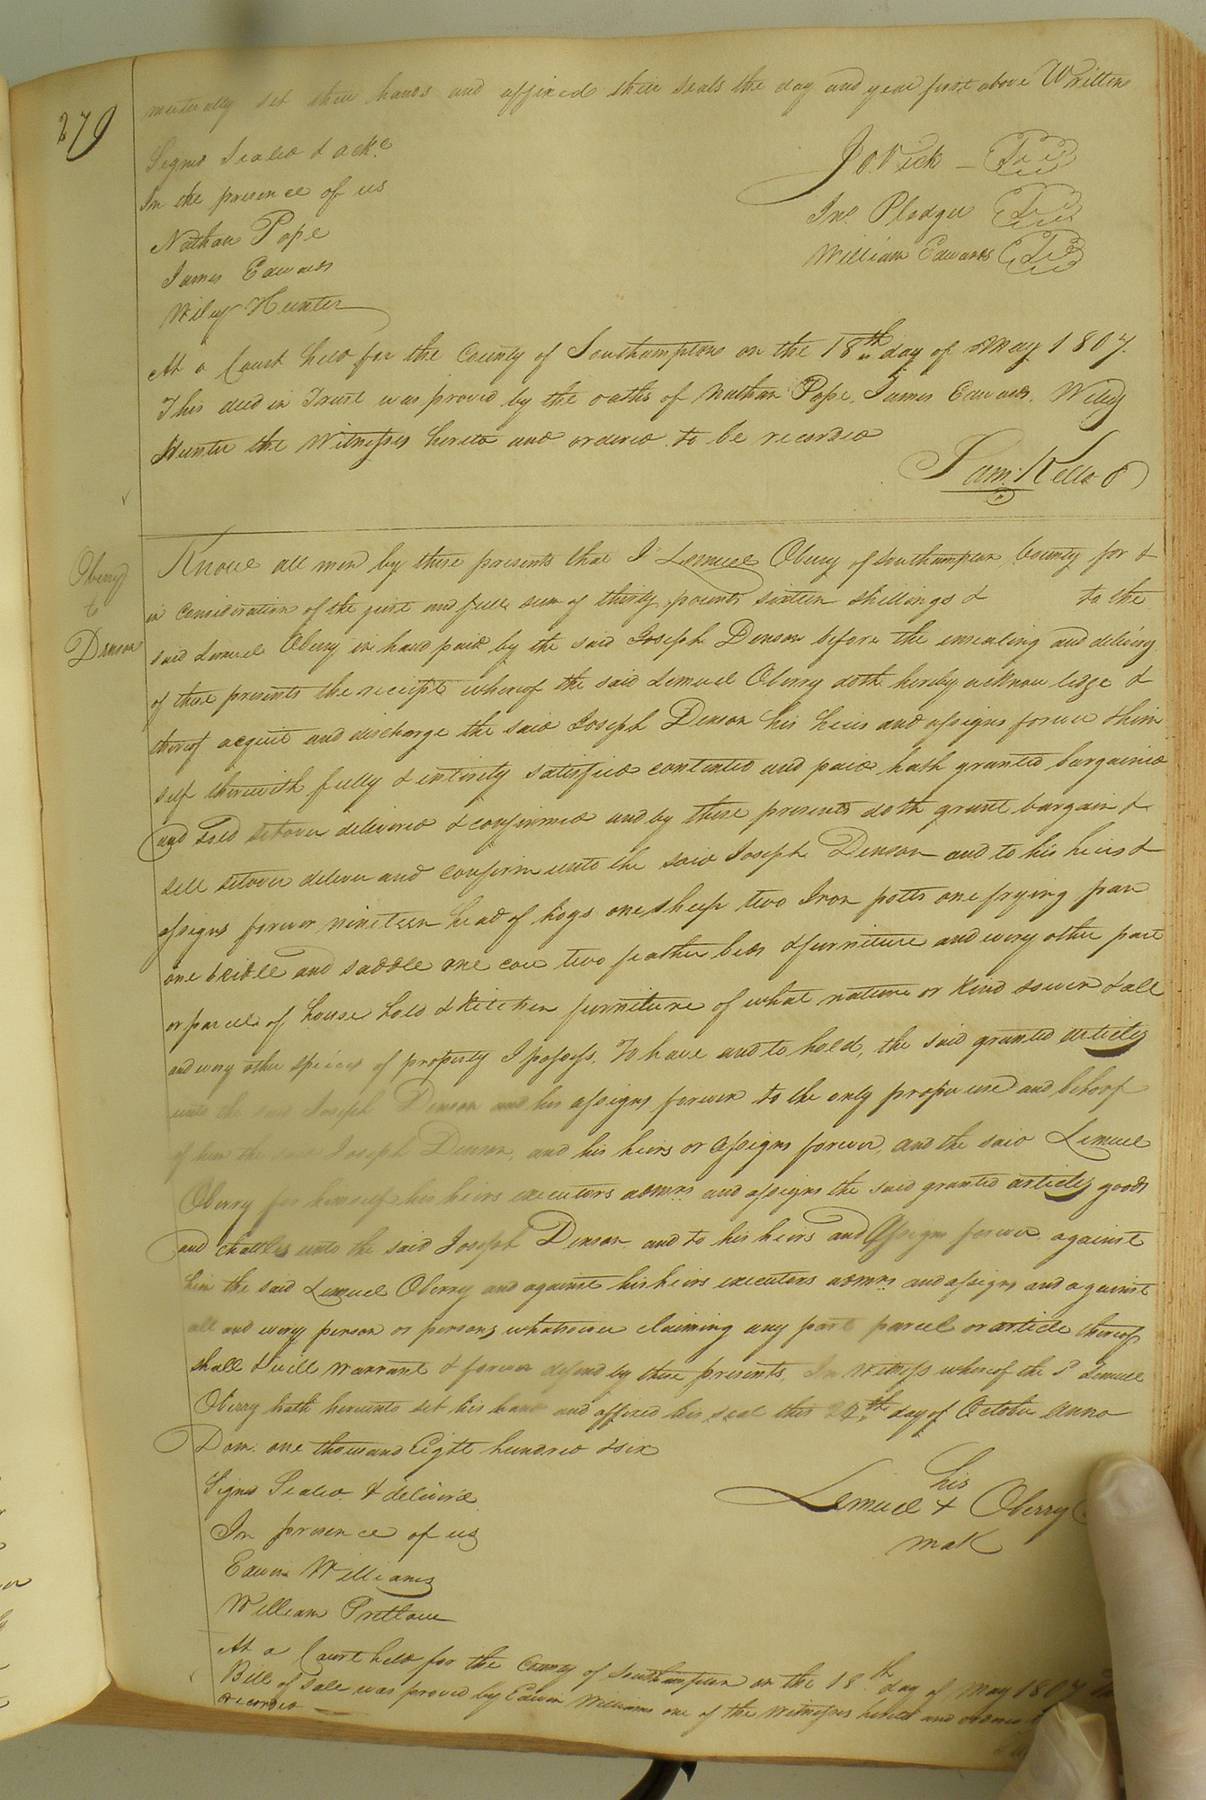 279
mutually set their hands and affixed their seals the day and year first above Written
Signd Sealed & ackd
In the presence of us
Nathan Pope
James Edwards
Wiley Hunter
Jo. Vick
Jno. Pledger
William Edwards
At a Court held for the County of Southampton on the 18th day of May 1807.
This deed in Trust was proved by the oaths of Nathan Pope, James Edwards, Wiley
Hunter the Witnesses hereto and ordered to be recorded
Sam. Kello
Oberry
to
Denson
Know all men by these presents that I Lemuel Oberry of Southampton County for &
in consideration of the just and full sum of thirty pounds sixteen shillings & to the
said Lemuel Oberry in hand paid by the said Joseph Denson before the ensealing and delivery
of these presents the receipt whereof the said Lemuel Oberry doth hereby acknowledge &
thereof acquit and discharge the said Joseph Denson his heirs and assigns forever & him
self therewith fully & entirely satisfied contented and paid hath granted bargained
and sold setover delivered & confirmed and by these presents doth grant bargain &
sell setover deliver and confirm unto the said Joseph Denson and to his heirs &
assigns forever nineteen head of hogs one sheep two Iron potts one frying pan
one bridle and saddle one cow two feather beds & furniture and every other part
or parcel of house hold & kitchen furniture of what nature or kind soever & all
and every other species of property I possess, To have and to hold, the said granted articles
unto the said Joseph Denson and his assigns forever to the only proper use and behoof
of him the said Joseph Denson, and his heirs or assigns forever, and the said Lemuel
Oberry for himself his heirs executors admrs and assigns the said granted articles goods
and chattles unto the said Joseph Denson and to his heirs and Assigns forever against
him the said Lemuel Oberry and against his heirs executors admrs and assigns and against
all and every person or persons whatsoever claiming any part parcel or article thereof
shall & will warrant & forever defend by these presents, In witness whereof the sd Lemuel
Oberry hath hereunto set his hand and affixed his seal this day of October anno
Dom. one thousand Eight hundred & six
Signd Sealed & deliverd
In presence of us
Edwin Williams
William Pretlow
his
Lemuel + Oberry
mak
At a Court held for the County of Southampton on the 18th day of May 1807
Bill of Sale was proved by Edwin Williams one of the Witnesses hereto and ordered
recorded